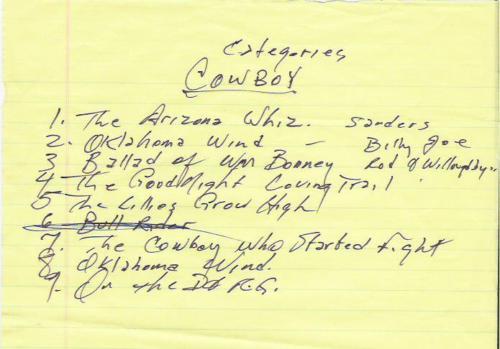 Categories
COWBOY
1. The Arizona Whiz. Sanders
2. Oklahoma Wind — Billy Joe
3 Ballad of Wm Bonney Rod
4 The Goodnight Loving Trail
5 The Lillies Grow High
6 Bull Rider
7. The Cowboy who Started Fight
8. Oklahoma Wind.
9. On the